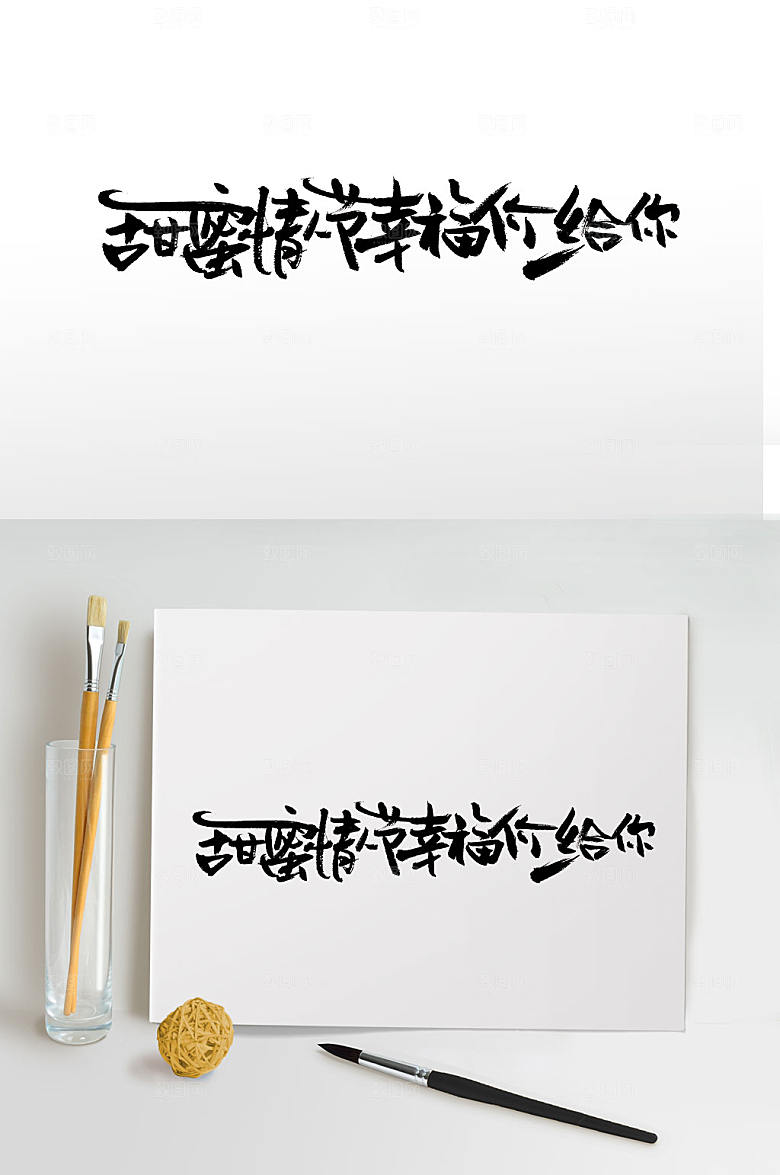 甜蜜情人节幸福价给你
甜蜜情人节幸福价给你